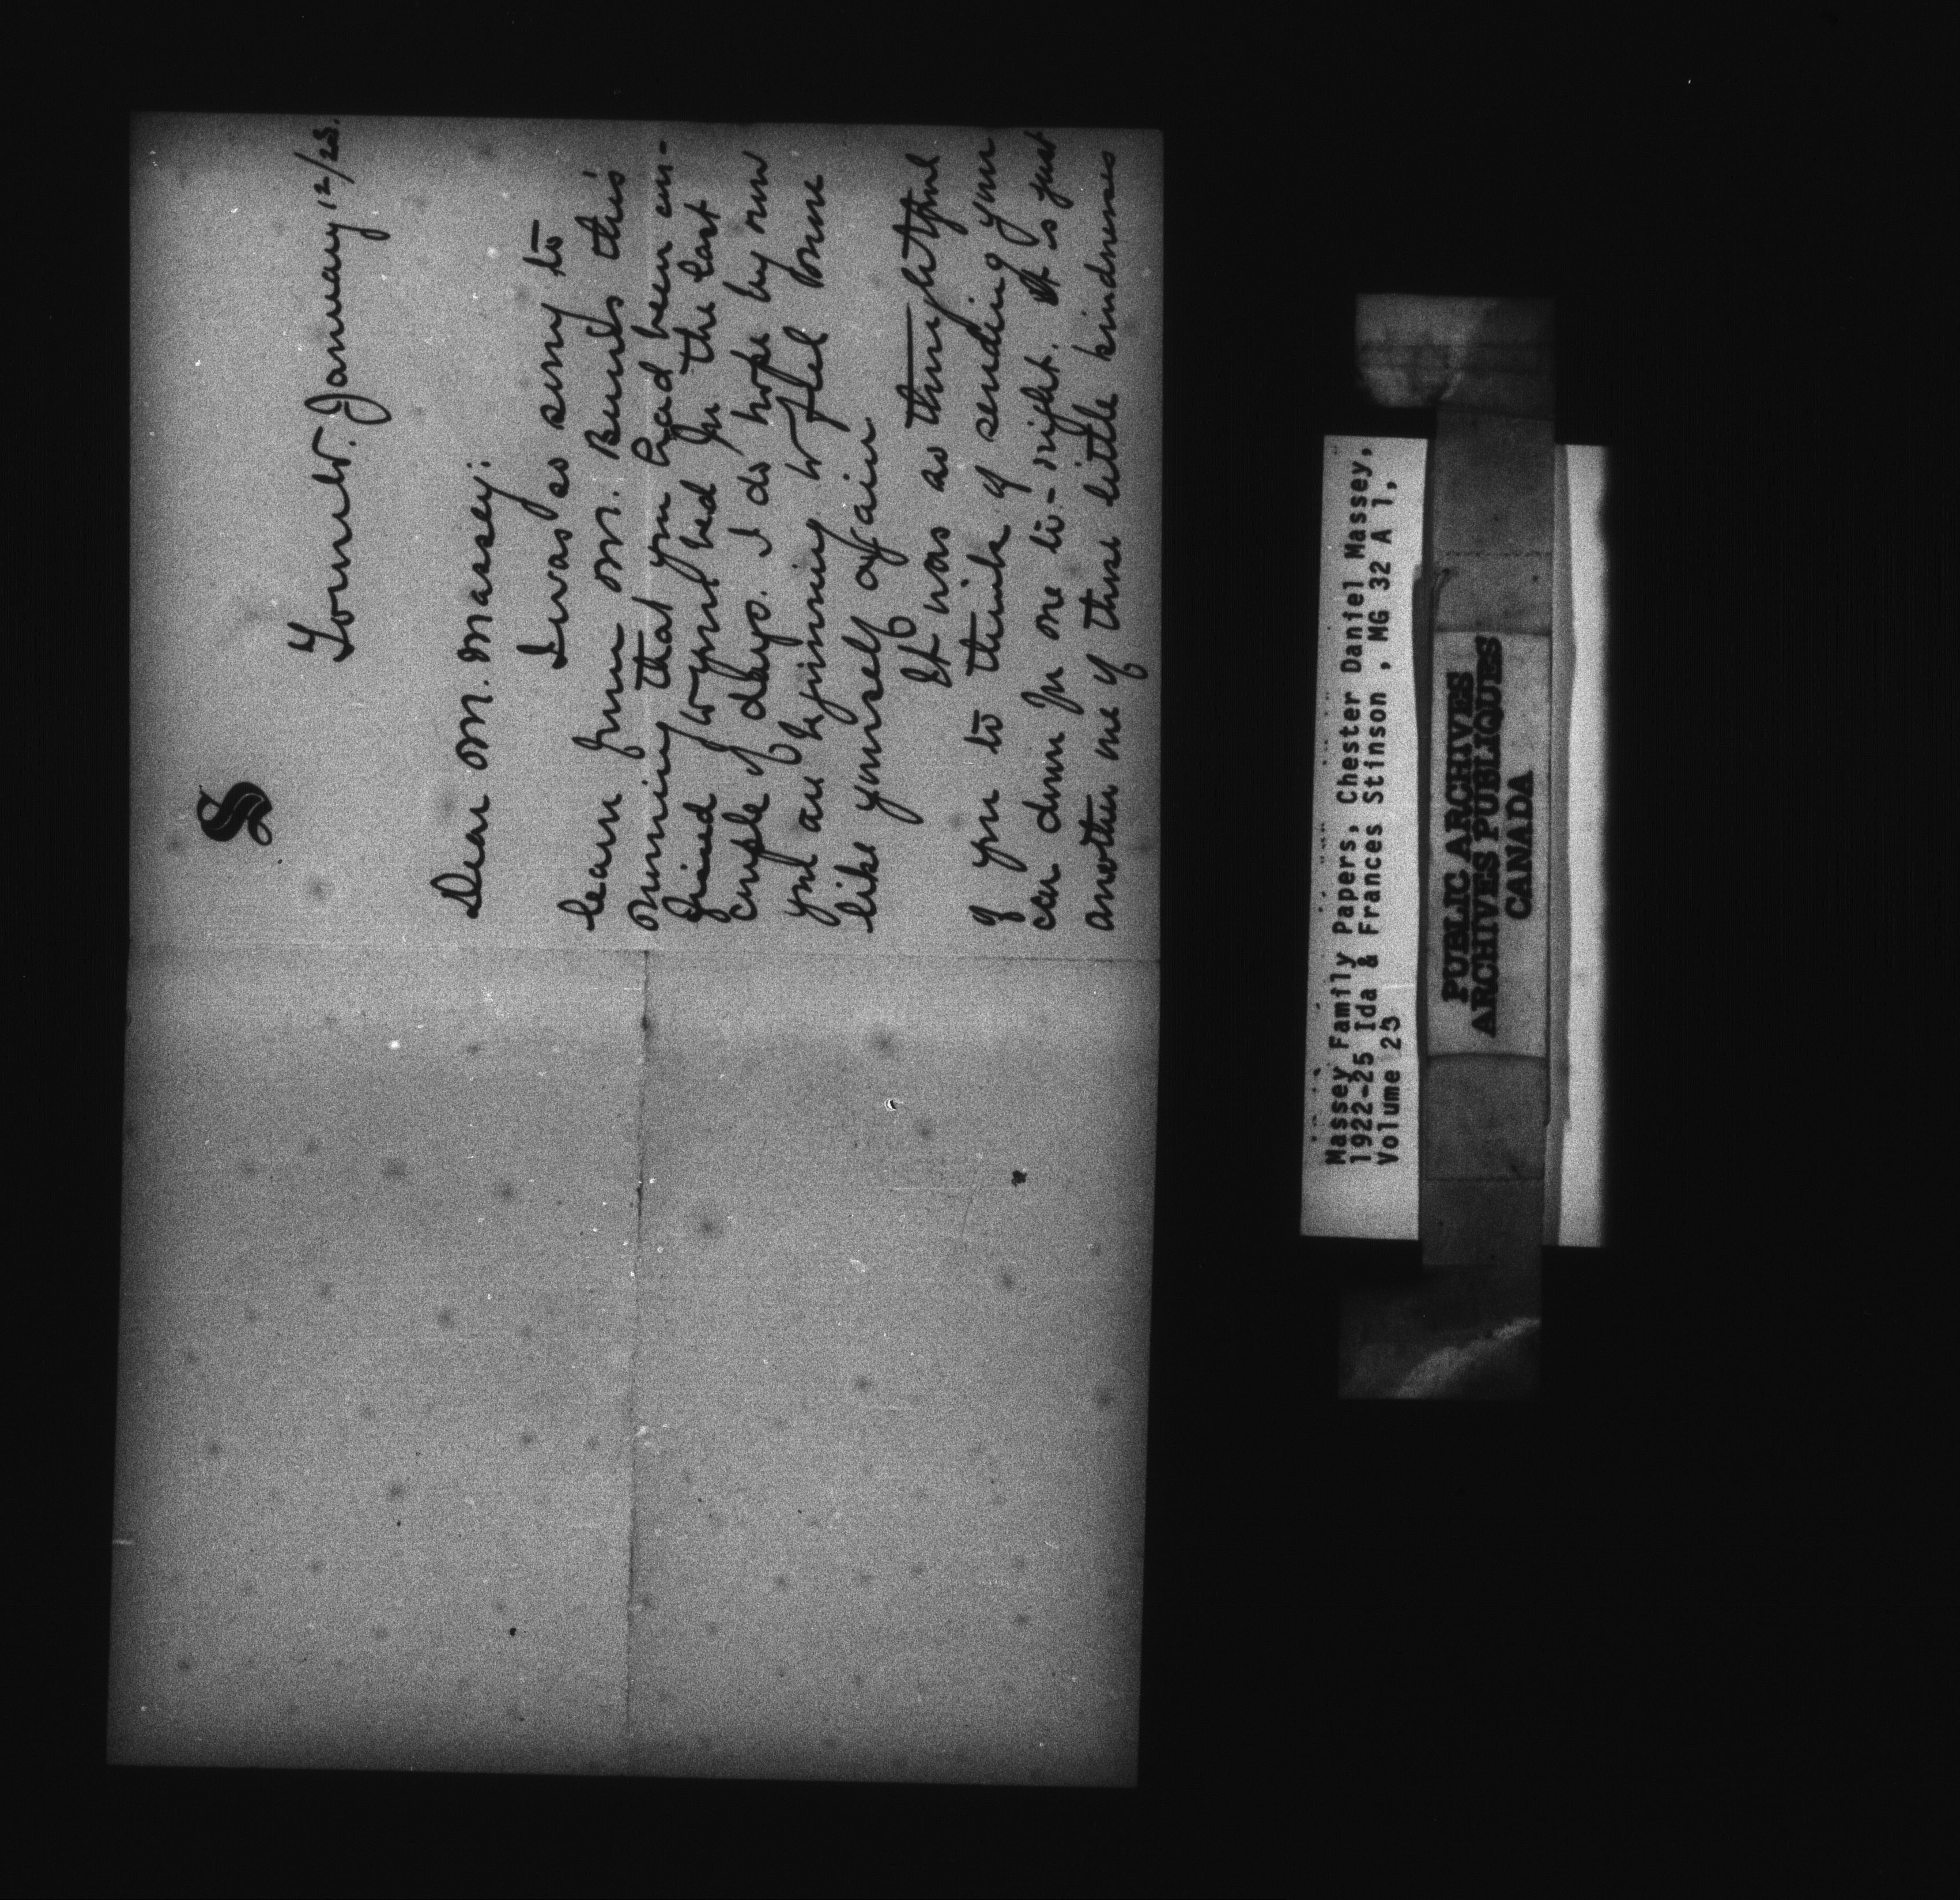 S
Toronto. January 12/25.
Dear Mr. Massey:
I was so sorry to
learn from Mr. Burnls this
morning that you had been con-
fined to your bed for the last
couple of days. I do hope by now
you are beginning to feel some
like yourself again
It was as thoughtful
of you to think of sending your
car down for me to-night. It is just
another one of those little kindnesses
Massey Family Papers, Chester Daniel Massey,
1922-25 Ida & Frances Stinson , MG 32 A 1,
Volume 23
PUBLIC ARCHIVES
ARCHIVES PUBLIQUES
CANADA